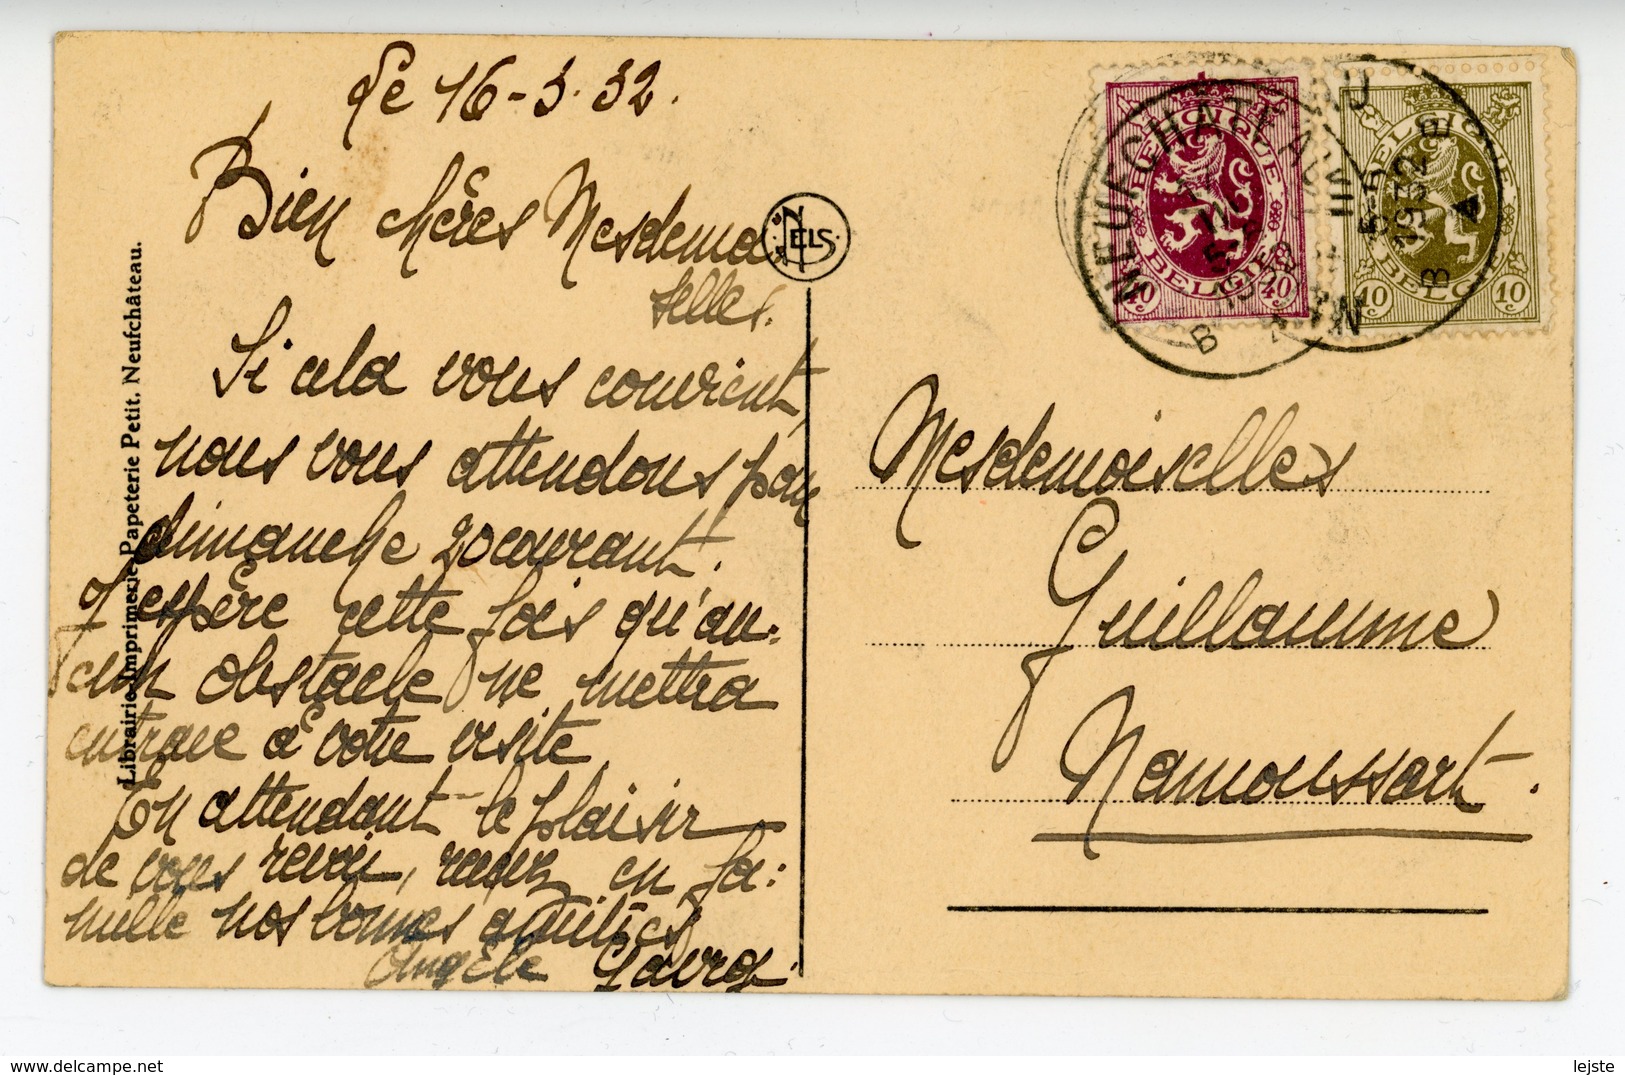 Le 16-3.32.
Bien chères Mesdemoi
selles.
Si cela vous convient,
nous vous attendons pour
dimanche 20 courant.
J'espère cette fois qu'au-
cun obstacle ne mettra
entrave à votre visite
En attendant le plaisir
de vous revoir, recevez en fa:
mille nos bonnes amitiés
Angèle Gavroy.
NELS
Librairie-Imprimerie-Papeterie Petit. Neufchâteau.
BELGIQUE
BELGIE
40 40
BELGIQUE
BELGIE
10 10
NEUFCHATEAU
1932
Mesdemoiselles
Guillaume
Namoussart.
lejste